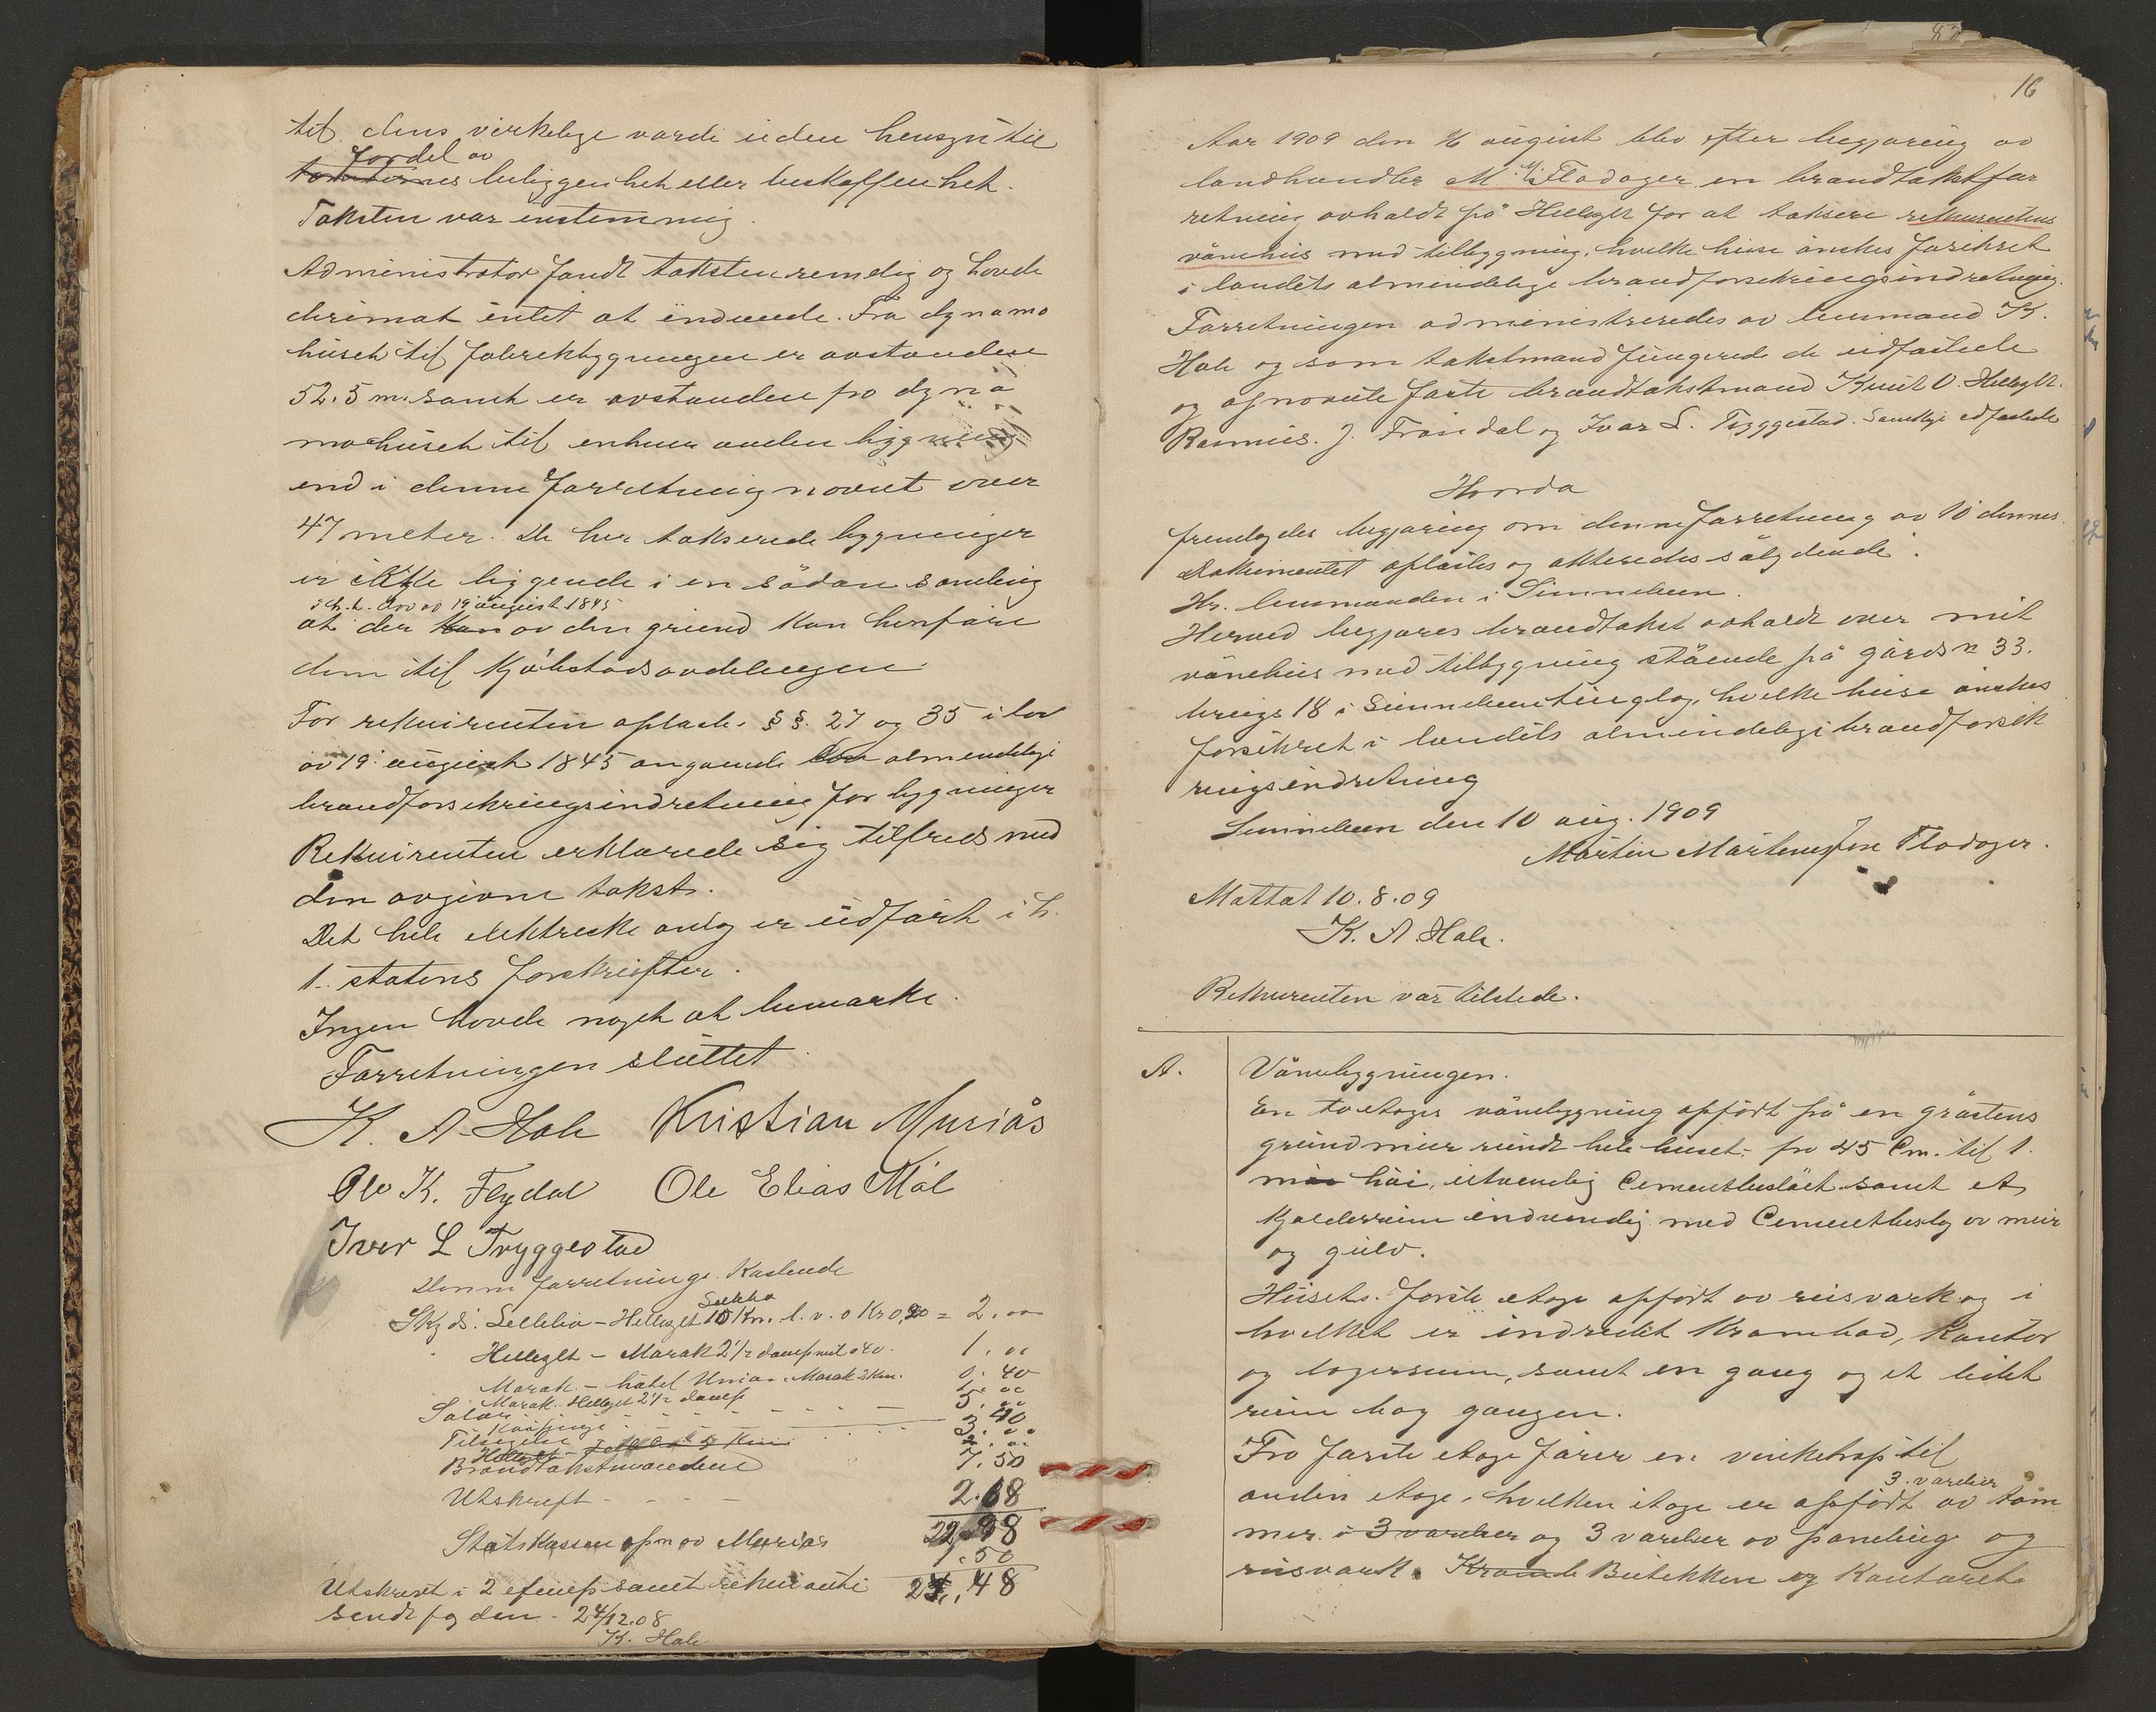 til dens virkelige værdi uden hensyn til
fordel av
tomternes beliggenhet eller beskaffenhet.
Taksten var enstemmig.
Administrator fandt taksten rimelig og havde
derimot intet at indvende. Fra dynamo
huset til fabrikbygningen er avstanden
52.5 m. samt er avstanden fra dyna
mohuset til enhver anden bygning
end i denne forretning nævnt over
47 meter. De her takserede bygninger
er ikke liggende i en sådan samling
i h. t. lov av 19 august 1845
at der kan av den grund kan henføre
dem til Kjøbstadsavdelingen.
For rekvirenten oplæstes §§. 27 og 35 i lov
av 19 august 1845 angaaende den almindelige
brandforsikringsindretning for bygninger
Rekvirenten erklærede sig tilfreds med
den avgivne takst.
Det hele elektriske anlæg er udført i h.
t. statens forskrifter.
Ingen havde noget at bemærke.
Forretningen sluttet
K. A. Hole Kristian Muriås
Ole K. Flydal Ole Elias Mål
Iver L Tryggestad
Denne forretnings Kostende
Søkke
Skyds: Lellebø - Hellesylt 10 Km. l. v. a Kr 0,20 = 2.00
Hellesylt - Marak 2 1/2 dampmil a 40. 1.00
Marak - hotel Union - Marak 2 Km. 0.40
Marak - Hellesylt 2 1/2 damp 1.00
Salær 5.00
Kostpenge 3.40
Tilsigelse
Brandtakstmændene 7.50
Utskrift - - - 2.68
22.98
Statskassen opm av Muriås 1.50
24.48
Utskrevet i 2 eksempl samt rekvirenti
sendt fog den 24/12.08
K. Hole
16
Aar 1909 den 16 august blev efter begjæring av
landhandler M. M. Flodager en brandtakstfor
retning avholdt på Hellesylt for at taksere rekvirentens
vånehus med tilbygning, hvilke huse ønskes forsikret
i landets almindelige brandforsikringsindretning.
Forretningen administreredes av lensmand K.
Hole og som takstmænd fungerede de udfæstede
og opnævnte faste brandtakstmænd Knut O. Hellesylt.
Rasmus. J. Frøisdal og Ivar L. Tryggestad. Samtlige edfæstede
Hvorda
fremlagdes begjæring om denne forretning av 10 dennes.
Dokumentet oplæstes og akteredes sålydende:
Hr. lensmanden i Sunnelven.
Herved begjæres brandtakst avholdt over mit
vånehus med tilbygning stående på gårds n 33.
brugs 18 i Sunnelven tinglag, hvilke huse ønskes
forsikret i landets almindelige brandforsik
ringsindretning
Sunnelven den 10 aug. 1909
Martin Martinussen Flodager.
Mottat 10.8.09
K. A. Hole.
Rekvirenten var tilstede.
A. Vånebygningen.
En toetages vånebygning opført på en gråstens
grundmur rundt hele huset, fra 45 Cm. til 1.
m høi, utvendig Cementbeslået samt et
Kjælderrum indvendig med Cementbeslag av mur
og gulv.
Husets første etage opført av reisværk og i
hvilket er indredet Krambod, Kontor
og lagerrum, samt en gang og et lidet
rum bag gangen.
Fra første etage fører en vinkeltrap til
3. værelser
anden etage, hvilken etage er opført av tøm
mer i 3 værelser og 3 værelser av paneling og
reisværk. Kramb Butikken og Kontoret